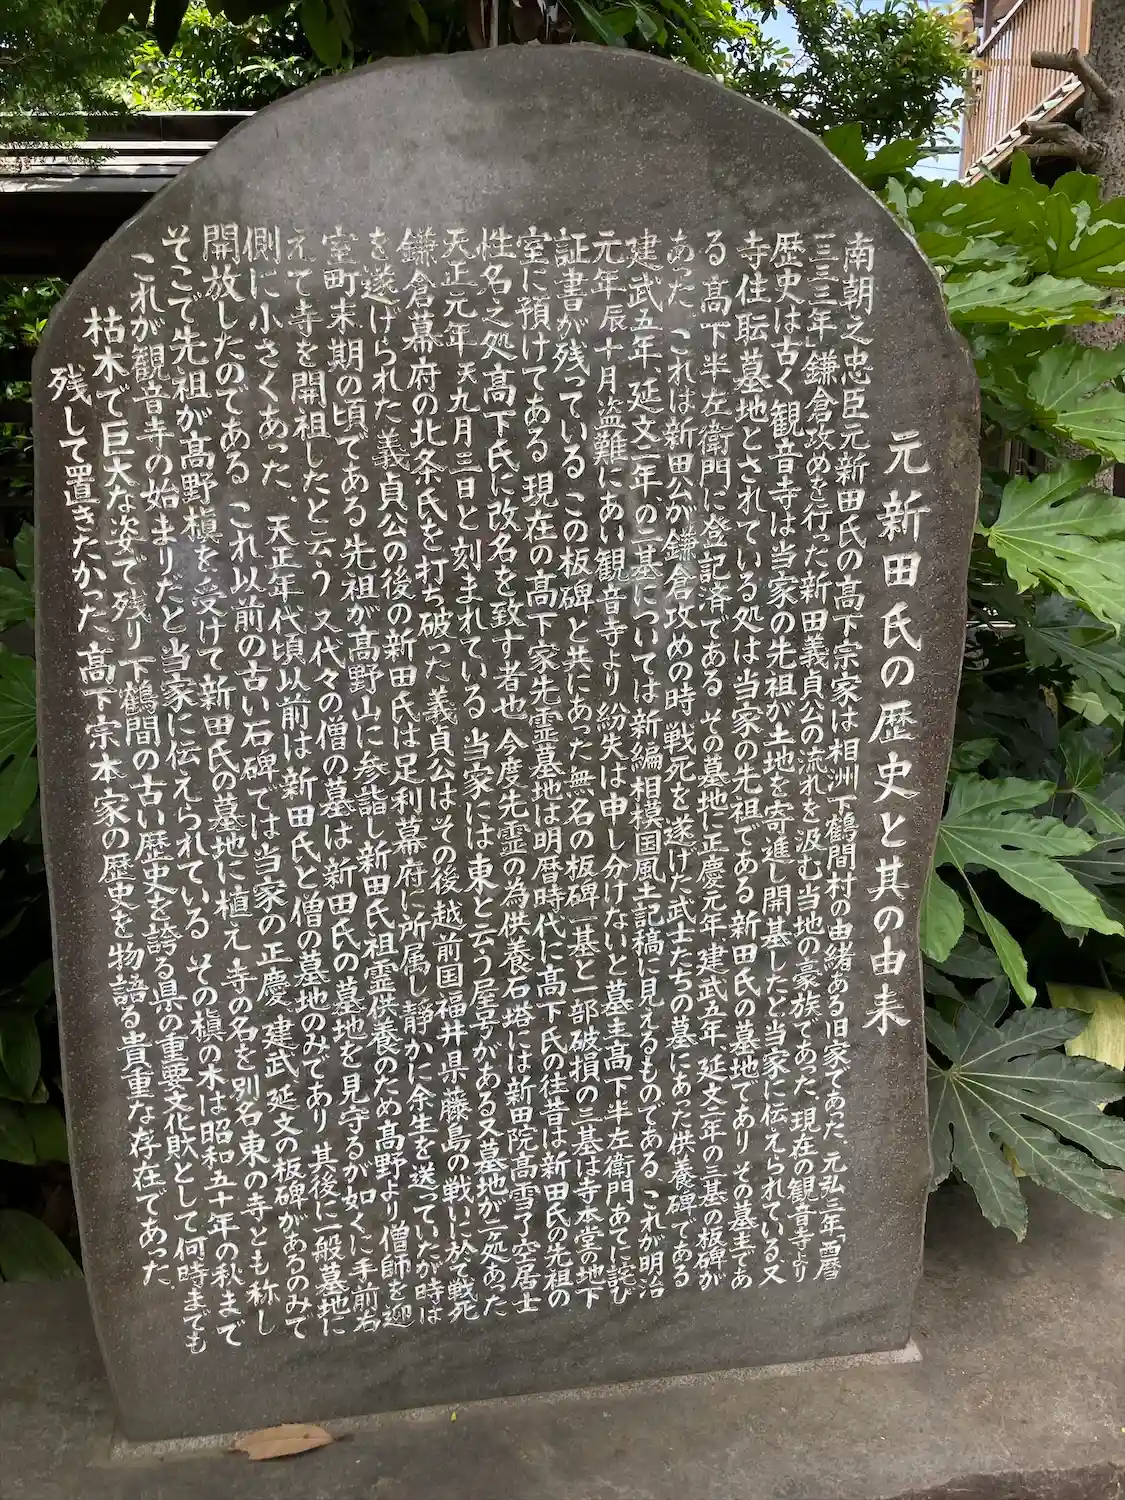 元新田氏の歴史と其の由来
南朝之忠臣元新田氏の高下宗家は相州下鶴間村の由緒ある旧家であった、元弘三年「西暦
一三三三年」鎌倉攻めを行った新田義貞公の流れを汲む当地の豪族であった、現在の観音寺より
歴史は古く観音寺は当家の先祖が土地を寄進し開基したと当家に伝えられている又
寺住職墓地とされている処は当家の先祖である新田氏の墓地であり その墓主であ
る高下半左衛門に登記済である その墓地に正慶元年 建武五年 延文二年の三基の板碑が
あった これは新田公が鎌倉攻めの時 戦死を遂げた武士たちの墓にあった供養碑である
建武五年 延文二年の二基については新編相模国風土記稿に見えるものである これが明治
元年辰十月盗難にあい観音寺より紛失は申し分けないと墓主高下半左衛門あてに詫び
証書が残っている この板碑と共にあった無名の板碑一基と一部破損の三基は寺本堂の地下
室に預けてある 現在の高下家先霊墓地は明暦時代に高下氏の往昔は新田氏の先祖の
性名之処高下氏に改名を致す者也 今度先霊の為供養石塔には新田院高雪了空居士
天正元年 天九月三日と刻まれている 当家には東と云う屋号がある又墓地が二処あった
鎌倉幕府の北条氏を打ち破った義貞公はその後越前国福井県藤島の戦いに於て戦死
を遂げられた 義貞公の後の新田氏は足利幕府に所属し静かに余生を送っていたが時は
室町末期の頃である先祖が高野山に参詣し新田氏祖霊供養のため高野より僧師を迎
えて寺を開祖したと云う 又代々の僧の墓は新田氏の墓地を見守るが如くに手前右
側に小さくあった、天正年代頃以前は新田氏と僧の墓地のみであり 其後に一般墓地に
開放したのである これ以前の古い石碑では当家の正慶 建武 延文の板碑があるのみて
そこで先祖が高野槇を受けて新田氏の墓地に植え寺の名を別名東の寺とも称し
これが観音寺の始まりだと当家に伝えられている その槇の木は昭和五十年の秋まで
枯木で巨大な姿で残り下鶴間の古い歴史を誇る県の重要文化財として何時までも
残して置きたかった 高下宗本家の歴史を物語る貴重な存在であった